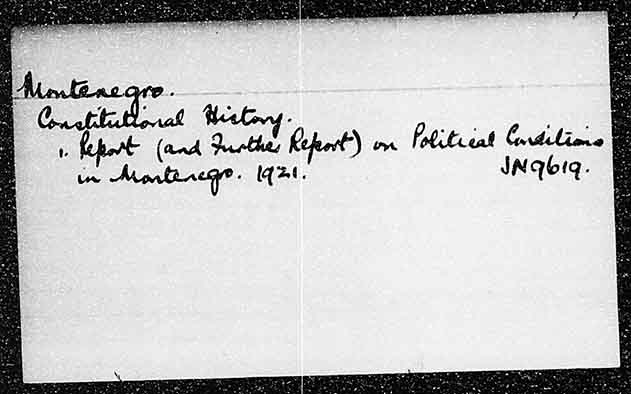 Montenegro.
Constitutional History.
1. Report (and Further Report) on Political Conditions
in Montenegro. 1921. JN9619.